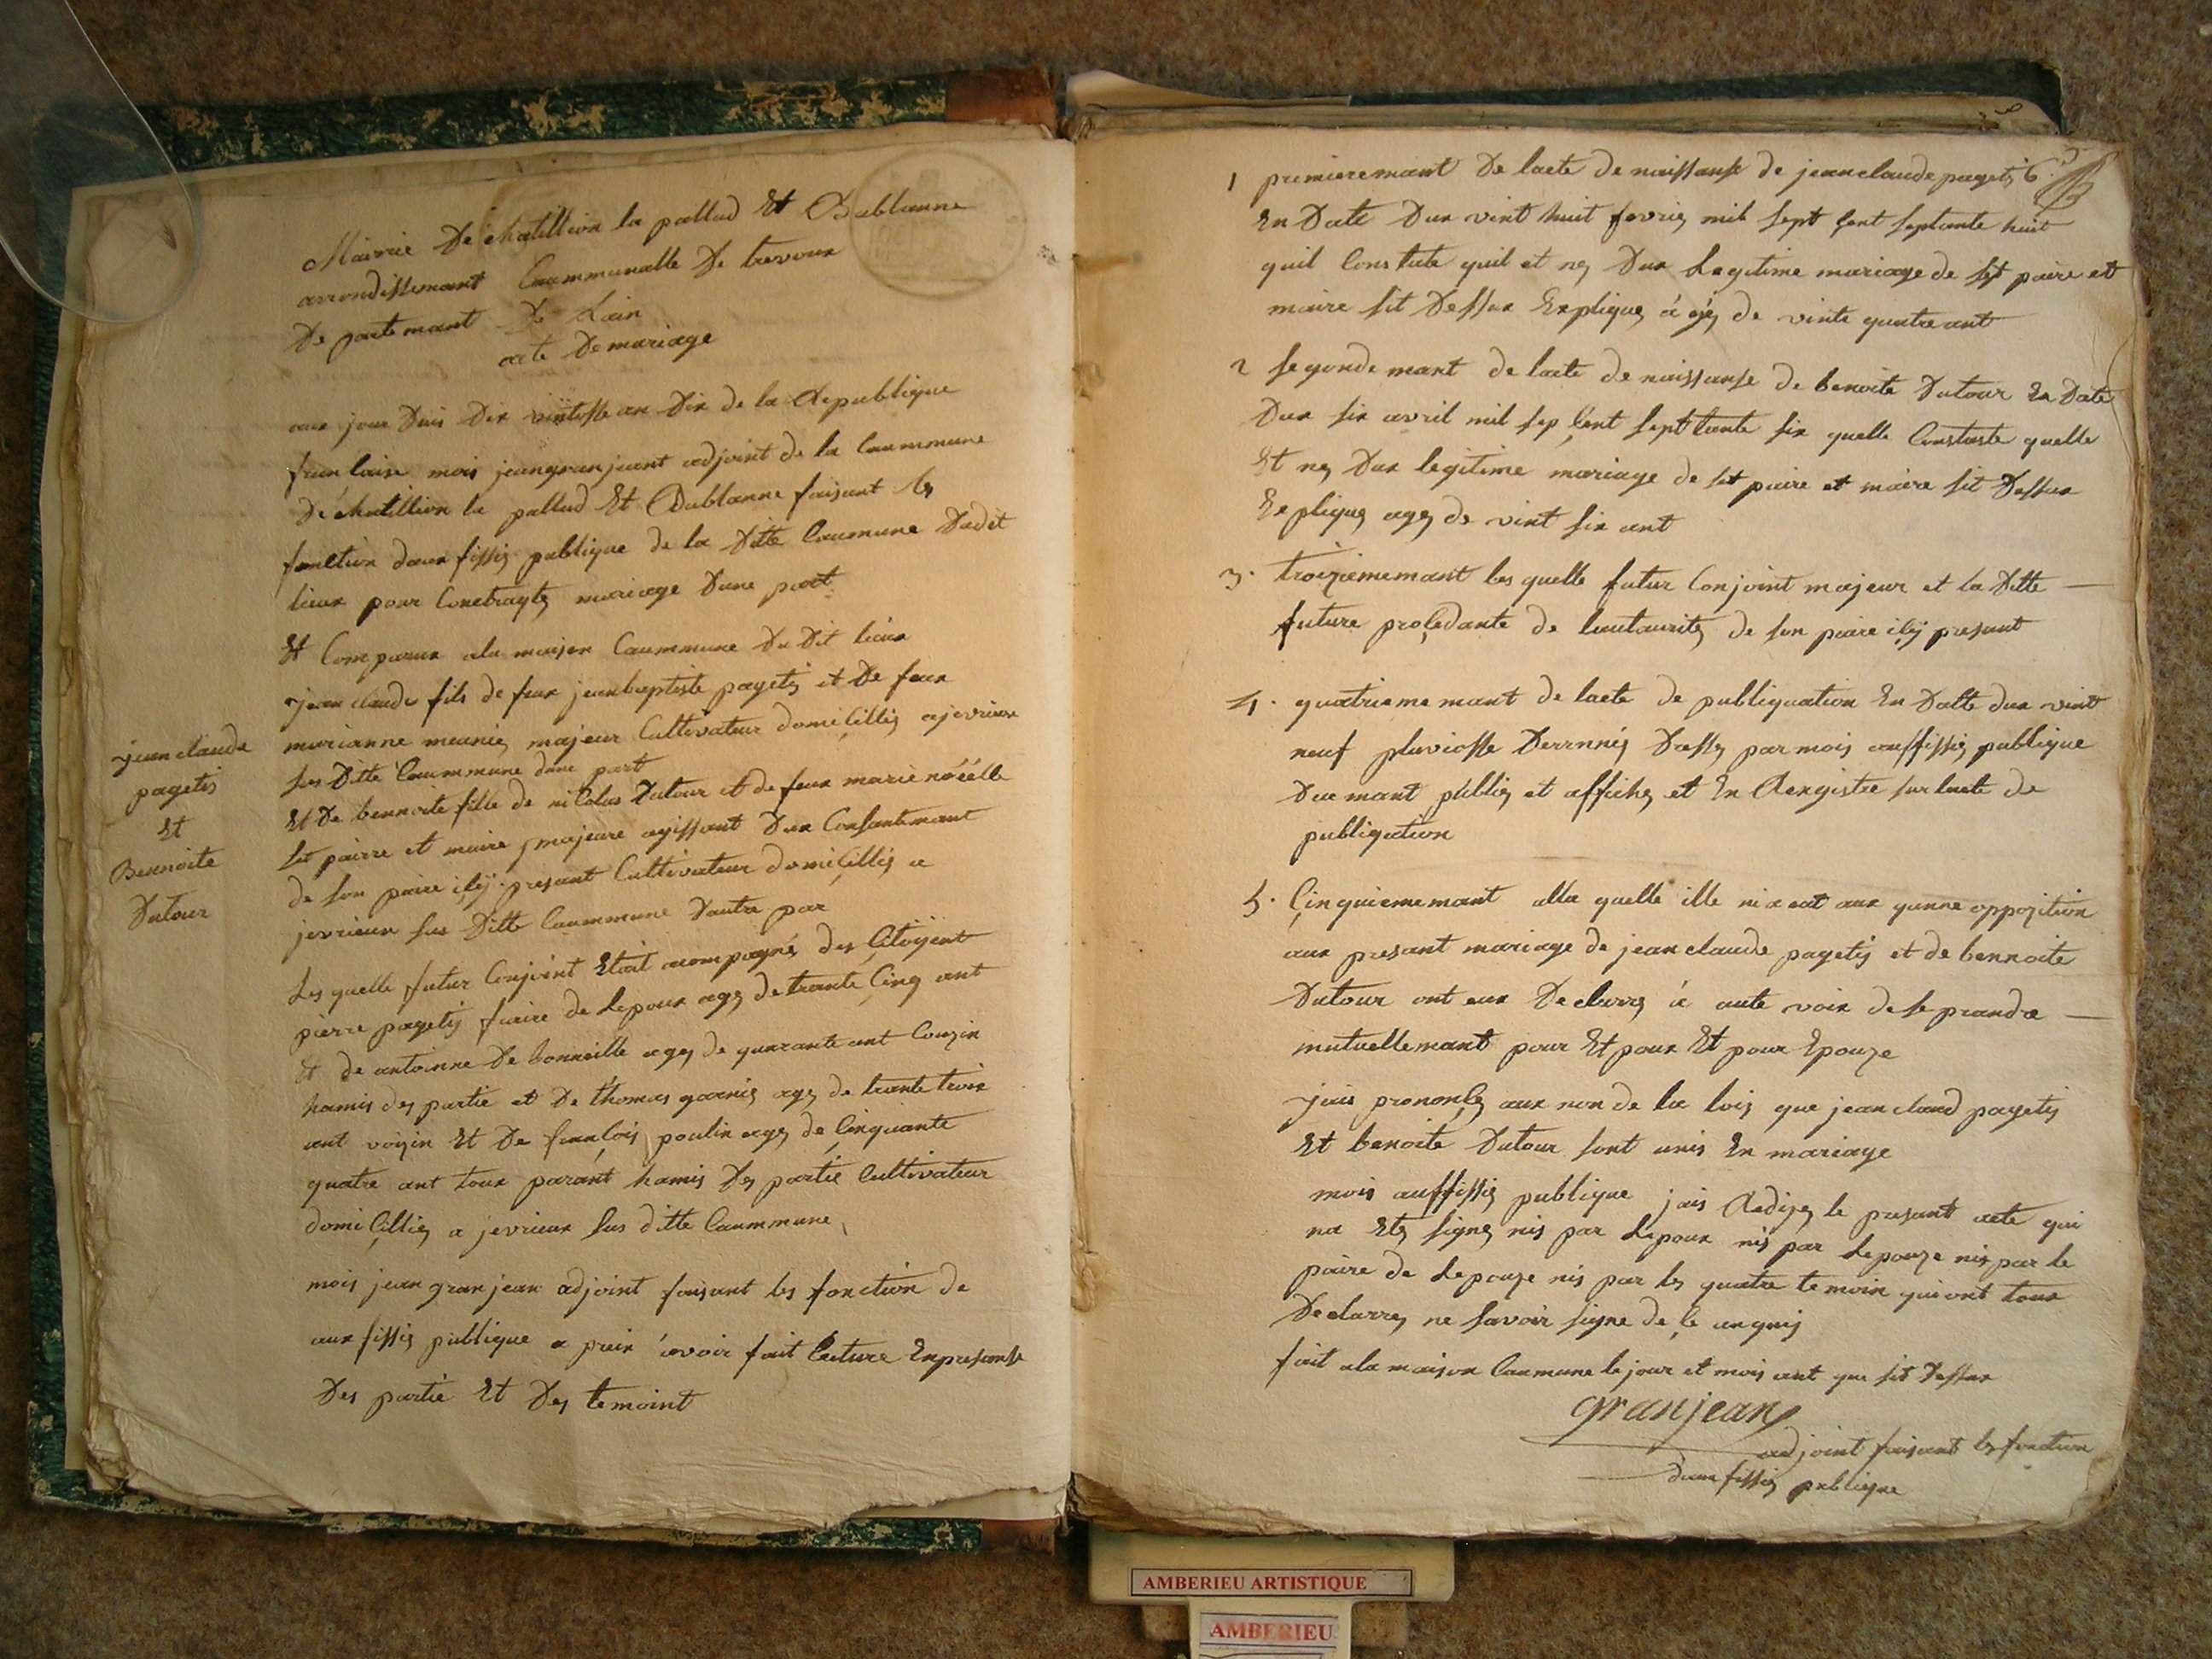 Mairie De chatillion la pallud Et Bublanne
arrondissemant Caummunalle De trevoux
De partemant De Lain
acte De mariage
aux jour Duis Dix vintosse an Dix de la Republique
francaise mois jeangranjeant adjoint de la Caummune
De chatillion la pallud Et Bublanne faisant les
fonction daux fissiez publique de la Ditte Caumune Dudit
lieux pour Contraytez mariage Dune part
Et Comparux ala maison Caummune Du Dit lieux
jean claude fils de feux jean baptiste pagetis et De feux
marianne meuniez majeur Cultivateur domiçilliez a jevrieux
sus Ditte Caummune dune part
Et De bennoite fille de nicolas Dutour et de feux marie nöéélle
set pairre et maire majeure agissant Dux Consantemant
de son paire içÿ presant Cultivateur domiçilliez a
jevrieux sus Ditte Caummune Dautre par
jean claude
pagetis
Et
Bennoite
Dutour
Les quelle futur Conjoint Etait acompagnés des Çitoÿent
pierre pagetis fraire de Lepoux agez de trante Çinq ant
Et de antoinne De bonneille agez de quarante ant Couzin
hamis des partie et De thomas garniez agez de trante troix
ant voizin Et De françois poulin agez de Çinquante
quatre ant toux parant hamis Des partie Cultivateur
domiçilliez a jevrieux sus ditte Caummune
mois jean granjean adjoint faisant les fonction de
aux fissiez publique a preix avoir fait Lecture En presanse
Des partie Et Des temoint
1 premieremant De lacte de naissanse de jean claude pagetis
En Date Dux vint huit fevriez mil sept Çent septante huit
quil Constate quil et nez Dux Legitime mariage de set paire et
maire sit Dessux Expliquez a gez de vinte quatre ant
2 segondemant de lacte de naissanse de benoite Dutour En Date
Dux six avril mil sep Çent septtante six quelle Constaste quelle
Et nez Dux legitime mariage de set paire et maire sit Dessux
Expliquez agez de vint six ant
3. troiziememant les quelle futur Conjoint majeur et la Ditte
future proçedante de lautauritez de son paire içÿ presant
4. quatriememant de lacte de publiquation En Datte dux vint
neuf pluviosse Derrnniez Dressez par mois auffissiez publique
Duemant publiez et affichez et En Rengistre sur lacte de
publiqation
5. Çinquiememant alla quelle ille ni a eut aux qunne oppozition
aux presant mariage de jean claude pagetis et de bennoite
Dutour ont eux Declarrez a aute voix de se prandre
mutuellemant pour Et poux Et pour Epouze
jais prononÇez aux non de la loix que jean claud pagetis
Et benoite Dutour sont unis En mariage
mois auffissiez publique jais Redizez le presant acte qui
na Etez signez nis par Lepoux nis par Lepouze nis par le
paire de Lepouze nis par les quatre temoin qui ont toux
Declarrez ne savoir signe de çe anquis
fait ala maison Caumune le jour et mois ant que sit Dessux
granjean
adjoint faisant les fonction
daux fissiez publique
AMBERIEU ARTISTIQUE
AMBERIEU